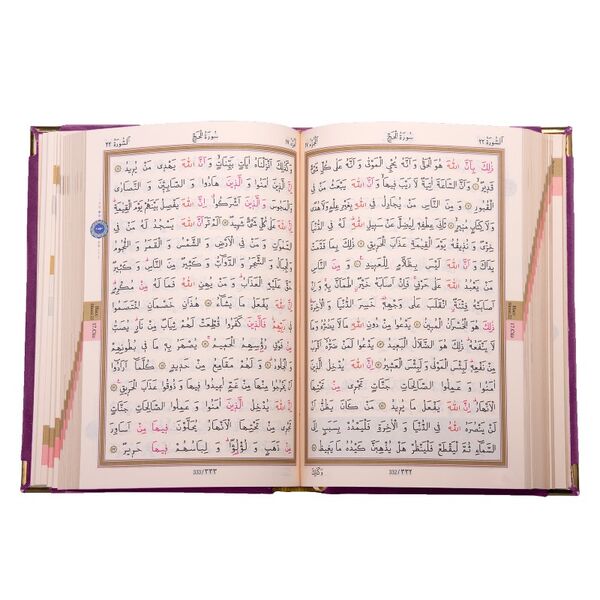 اَلسُّورَةُ ٢٢
سُورَةُ الْحَجِّ
ذٰلِكَ بِاَنَّ اللّٰهَ هُوَ الْحَقُّ وَاَنَّهُ يُحْيِ الْمَوْتٰى وَاَنَّهُ عَلٰى كُلِّ شَيْءٍ
قَدِيرٌ وَاَنَّ السَّاعَةَ اٰتِيَةٌ لَا رَيْبَ فِيهَا وَاَنَّ اللّٰهَ يَبْعَثُ مَنْ فِي
الْقُبُورِ وَمِنَ النَّاسِ مَنْ يُجَادِلُ فِي اللّٰهِ بِغَيْرِ عِلْمٍ وَلَا هُدًى
وَلَا كِتَابٍ مُنِيرٍ ثَانِيَ عِطْفِهِ لِيُضِلَّ عَنْ سَبِيلِ اللّٰهِ لَهُ فِي الدُّنْيَا
خِزْيٌ وَنُذِيقُهُ يَوْمَ الْقِيٰمَةِ عَذَابَ الْحَرِيقِ ذٰلِكَ بِمَا قَدَّمَتْ
يَدَاكَ وَاَنَّ اللّٰهَ لَيْسَ بِظَلَّامٍ لِلْعَبِيدِ وَمِنَ النَّاسِ
مَنْ يَعْبُدُ اللّٰهَ عَلٰى حَرْفٍ فَاِنْ اَصَابَهُ خَيْرٌ اطْمَاَنَّ بِهِ وَاِنْ
اَصَابَتْهُ فِتْنَةٌ انْقَلَبَ عَلٰى وَجْهِهِ خَسِرَ الدُّنْيَا وَالْاٰخِرَةَ
ذٰلِكَ هُوَ الْخُسْرَانُ الْمُبِينُ يَدْعُوا مِنْ دُونِ اللّٰهِ مَا لَا يَضُرُّهُ وَمَا
لَا يَنْفَعُهُ ذٰلِكَ هُوَ الضَّلَالُ الْبَعِيدُ يَدْعُوا لَمَنْ ضَرُّهُ اَقْرَبُ
مِنْ نَفْعِهِ لَبِئْسَ الْمَوْلٰى وَلَبِئْسَ الْعَشِيرُ اِنَّ اللّٰهَ يُدْخِلُ
الَّذِينَ اٰمَنُوا وَعَمِلُوا الصَّالِحَاتِ جَنَّاتٍ تَجْرِي مِنْ تَحْتِهَا
الْاَنْهَارُ اِنَّ اللّٰهَ يَفْعَلُ مَا يُرِيدُ مَنْ كَانَ يَظُنُّ اَنْ
لَنْ يَنْصُرَهُ اللّٰهُ فِي الدُّنْيَا وَالْاٰخِرَةِ فَلْيَمْدُدْ بِسَبَبٍ اِلَى
السَّمَاءِ ثُمَّ لْيَقْطَعْ فَلْيَنْظُرْ هَلْ يُذْهِبَنَّ كَيْدُهُ مَا يَغِيظُ
332/٣٣٢
وَكَذٰلِكَ
سُورَةُ الْحَجِّ
اَلسُّورَةُ ٢٢
وَكَذٰلِكَ اَنْزَلْنَاهُ اٰيَاتٍ بَيِّنَاتٍ وَاَنَّ اللّٰهَ يَهْدِي مَنْ يُرِيدُ
اِنَّ الَّذِينَ اٰمَنُوا وَالَّذِينَ هَادُوا وَالصَّابِئِينَ وَالنَّصَارٰى
وَالْمَجُوسَ وَالَّذِينَ اَشْرَكُوا اِنَّ اللّٰهَ يَفْصِلُ بَيْنَهُمْ يَوْمَ الْقِيٰمَةِ
اِنَّ اللّٰهَ عَلٰى كُلِّ شَيْءٍ شَهِيدٌ اَلَمْ تَرَ اَنَّ اللّٰهَ يَسْجُدُ لَهُ مَنْ فِي
السَّمٰوَاتِ وَمَنْ فِي الْاَرْضِ وَالشَّمْسُ وَالْقَمَرُ وَالنُّجُومُ
وَالْجِبَالُ وَالشَّجَرُ وَالدَّوَابُّ وَكَثِيرٌ مِنَ النَّاسِ وَكَثِيرٌ
حَقَّ عَلَيْهِ الْعَذَابُ وَمَنْ يُهِنِ اللّٰهُ فَمَا لَهُ مِنْ مُكْرِمٍ
اِنَّ اللّٰهَ يَفْعَلُ مَا يَشَاءُ هٰذَانِ خَصْمَانِ اخْتَصَمُوا
فِي رَبِّهِمْ فَالَّذِينَ كَفَرُوا قُطِّعَتْ لَهُمْ ثِيَابٌ مِنْ نَارٍ يُصَبُّ
مِنْ فَوْقِ رُؤُسِهِمُ الْحَمِيمُ يُصْهَرُ بِهِ مَا فِي بُطُونِهِمْ
وَالْجُلُودُ وَلَهُمْ مَقَامِعُ مِنْ حَدِيدٍ كُلَّمَا اَرَادُوا
اَنْ يَخْرُجُوا مِنْهَا مِنْ غَمٍّ اُعِيدُوا فِيهَا وَذُوقُوا عَذَابَ الْحَرِيقِ
اِنَّ اللّٰهَ يُدْخِلُ الَّذِينَ اٰمَنُوا وَعَمِلُوا الصَّالِحَاتِ جَنَّاتٍ
تَجْرِي مِنْ تَحْتِهَا الْاَنْهَارُ يُحَلَّوْنَ فِيهَا مِنْ اَسَاوِرَ
مِنْ ذَهَبٍ وَلُؤْلُؤًا وَلِبَاسُهُمْ فِيهَا حَرِيرٌ
333/٣٣٣